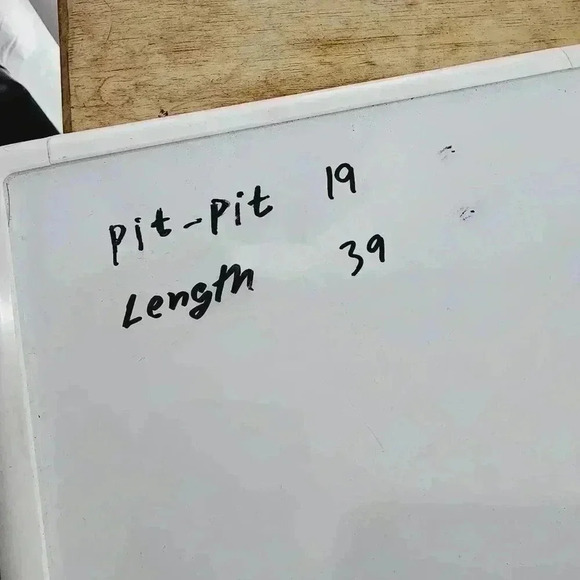 Pit-Pit 19
Length 39